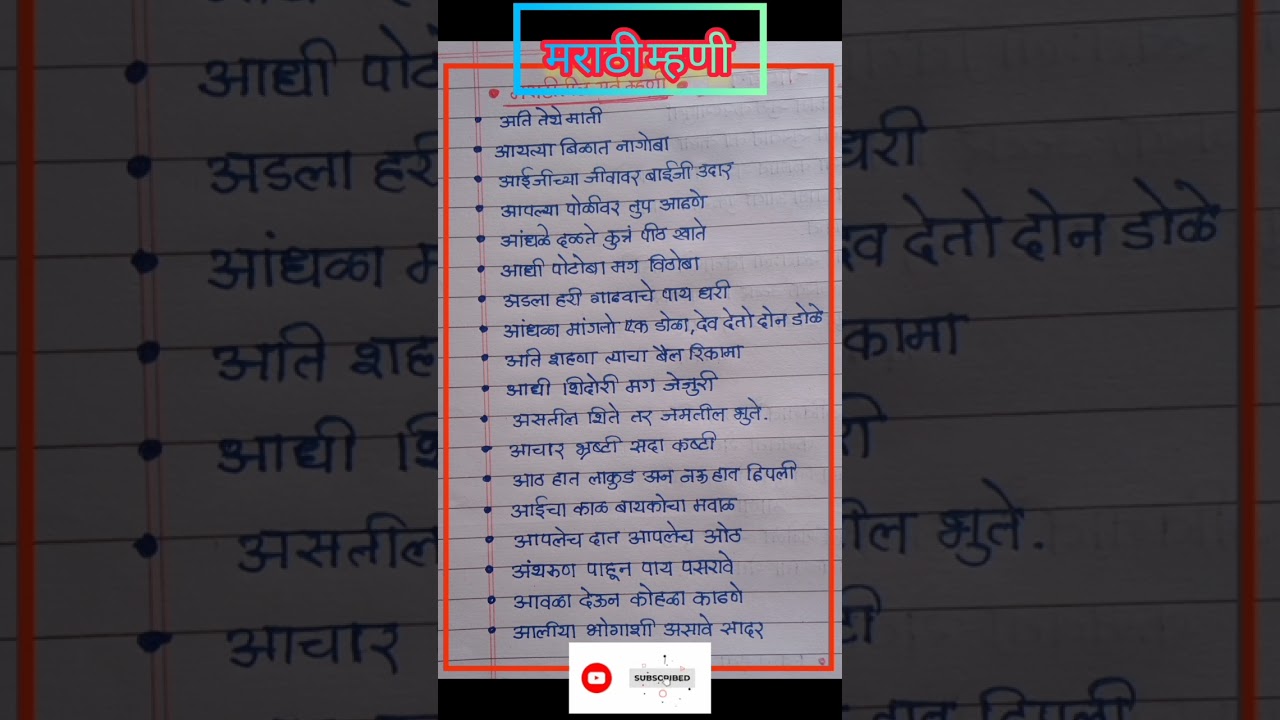 मराठी म्हणी
अति तेथे माती
आयत्या बिळात नागोबा
आईजीच्या जीवावर बाईजी उदार
आपल्या पोळीवर तुप आढणे
आंधळे दळते कुत्रं पीठ खाते
आधी पोटोबा मग विठोबा
अडला हरी गाढवाचे पाय धरी
आंधळा मांगतो एक डोळा, देव देतो दोन डोळे
अति शहणा त्याचा बैल रिकामा
आधी शिदोरी मग जेजुरी
असतील शिते तर जमतील भुते.
आचार भ्रष्टी सदा कष्टी
आठ हात लाकुड अन नऊ हात ढिपली
आईचा काळ बायकोचा मवाळ
आपलेच दात आपलेच ओठ
अंथरुण पाहून पाय पसरावे
आवळा देऊन कोहळा काढणे
आलीया भोगाशी असावे सादर
SUBSCRIBED